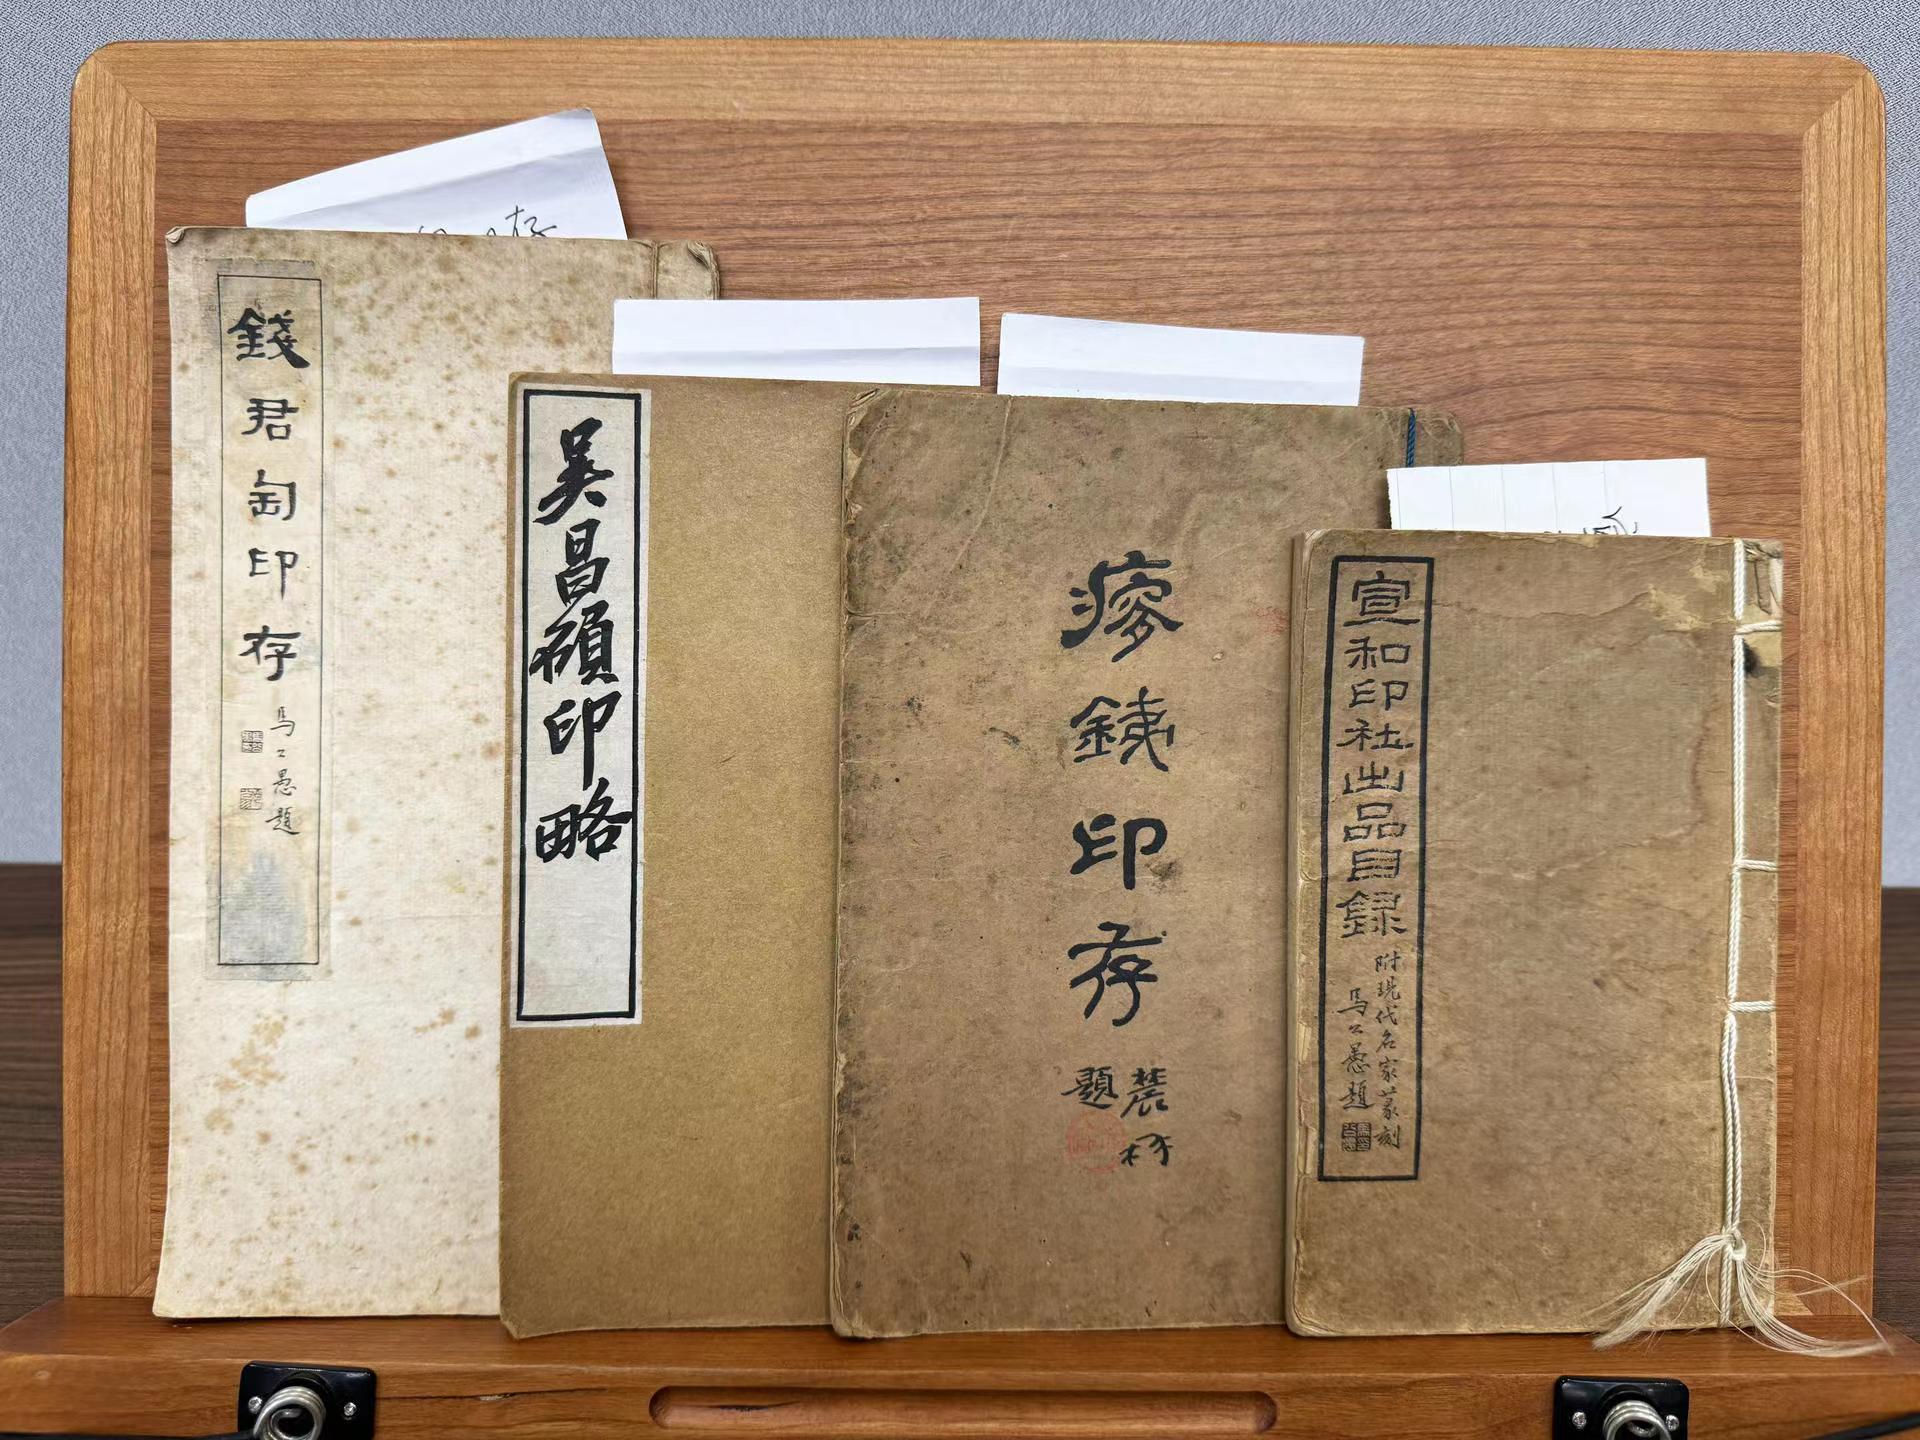 錢君匋印存
馬公愚題
吴昌碩印略
瘳銕印存
農柯
題
宣和印社出品目録
附現代名家篆刻
馬公愚題
存